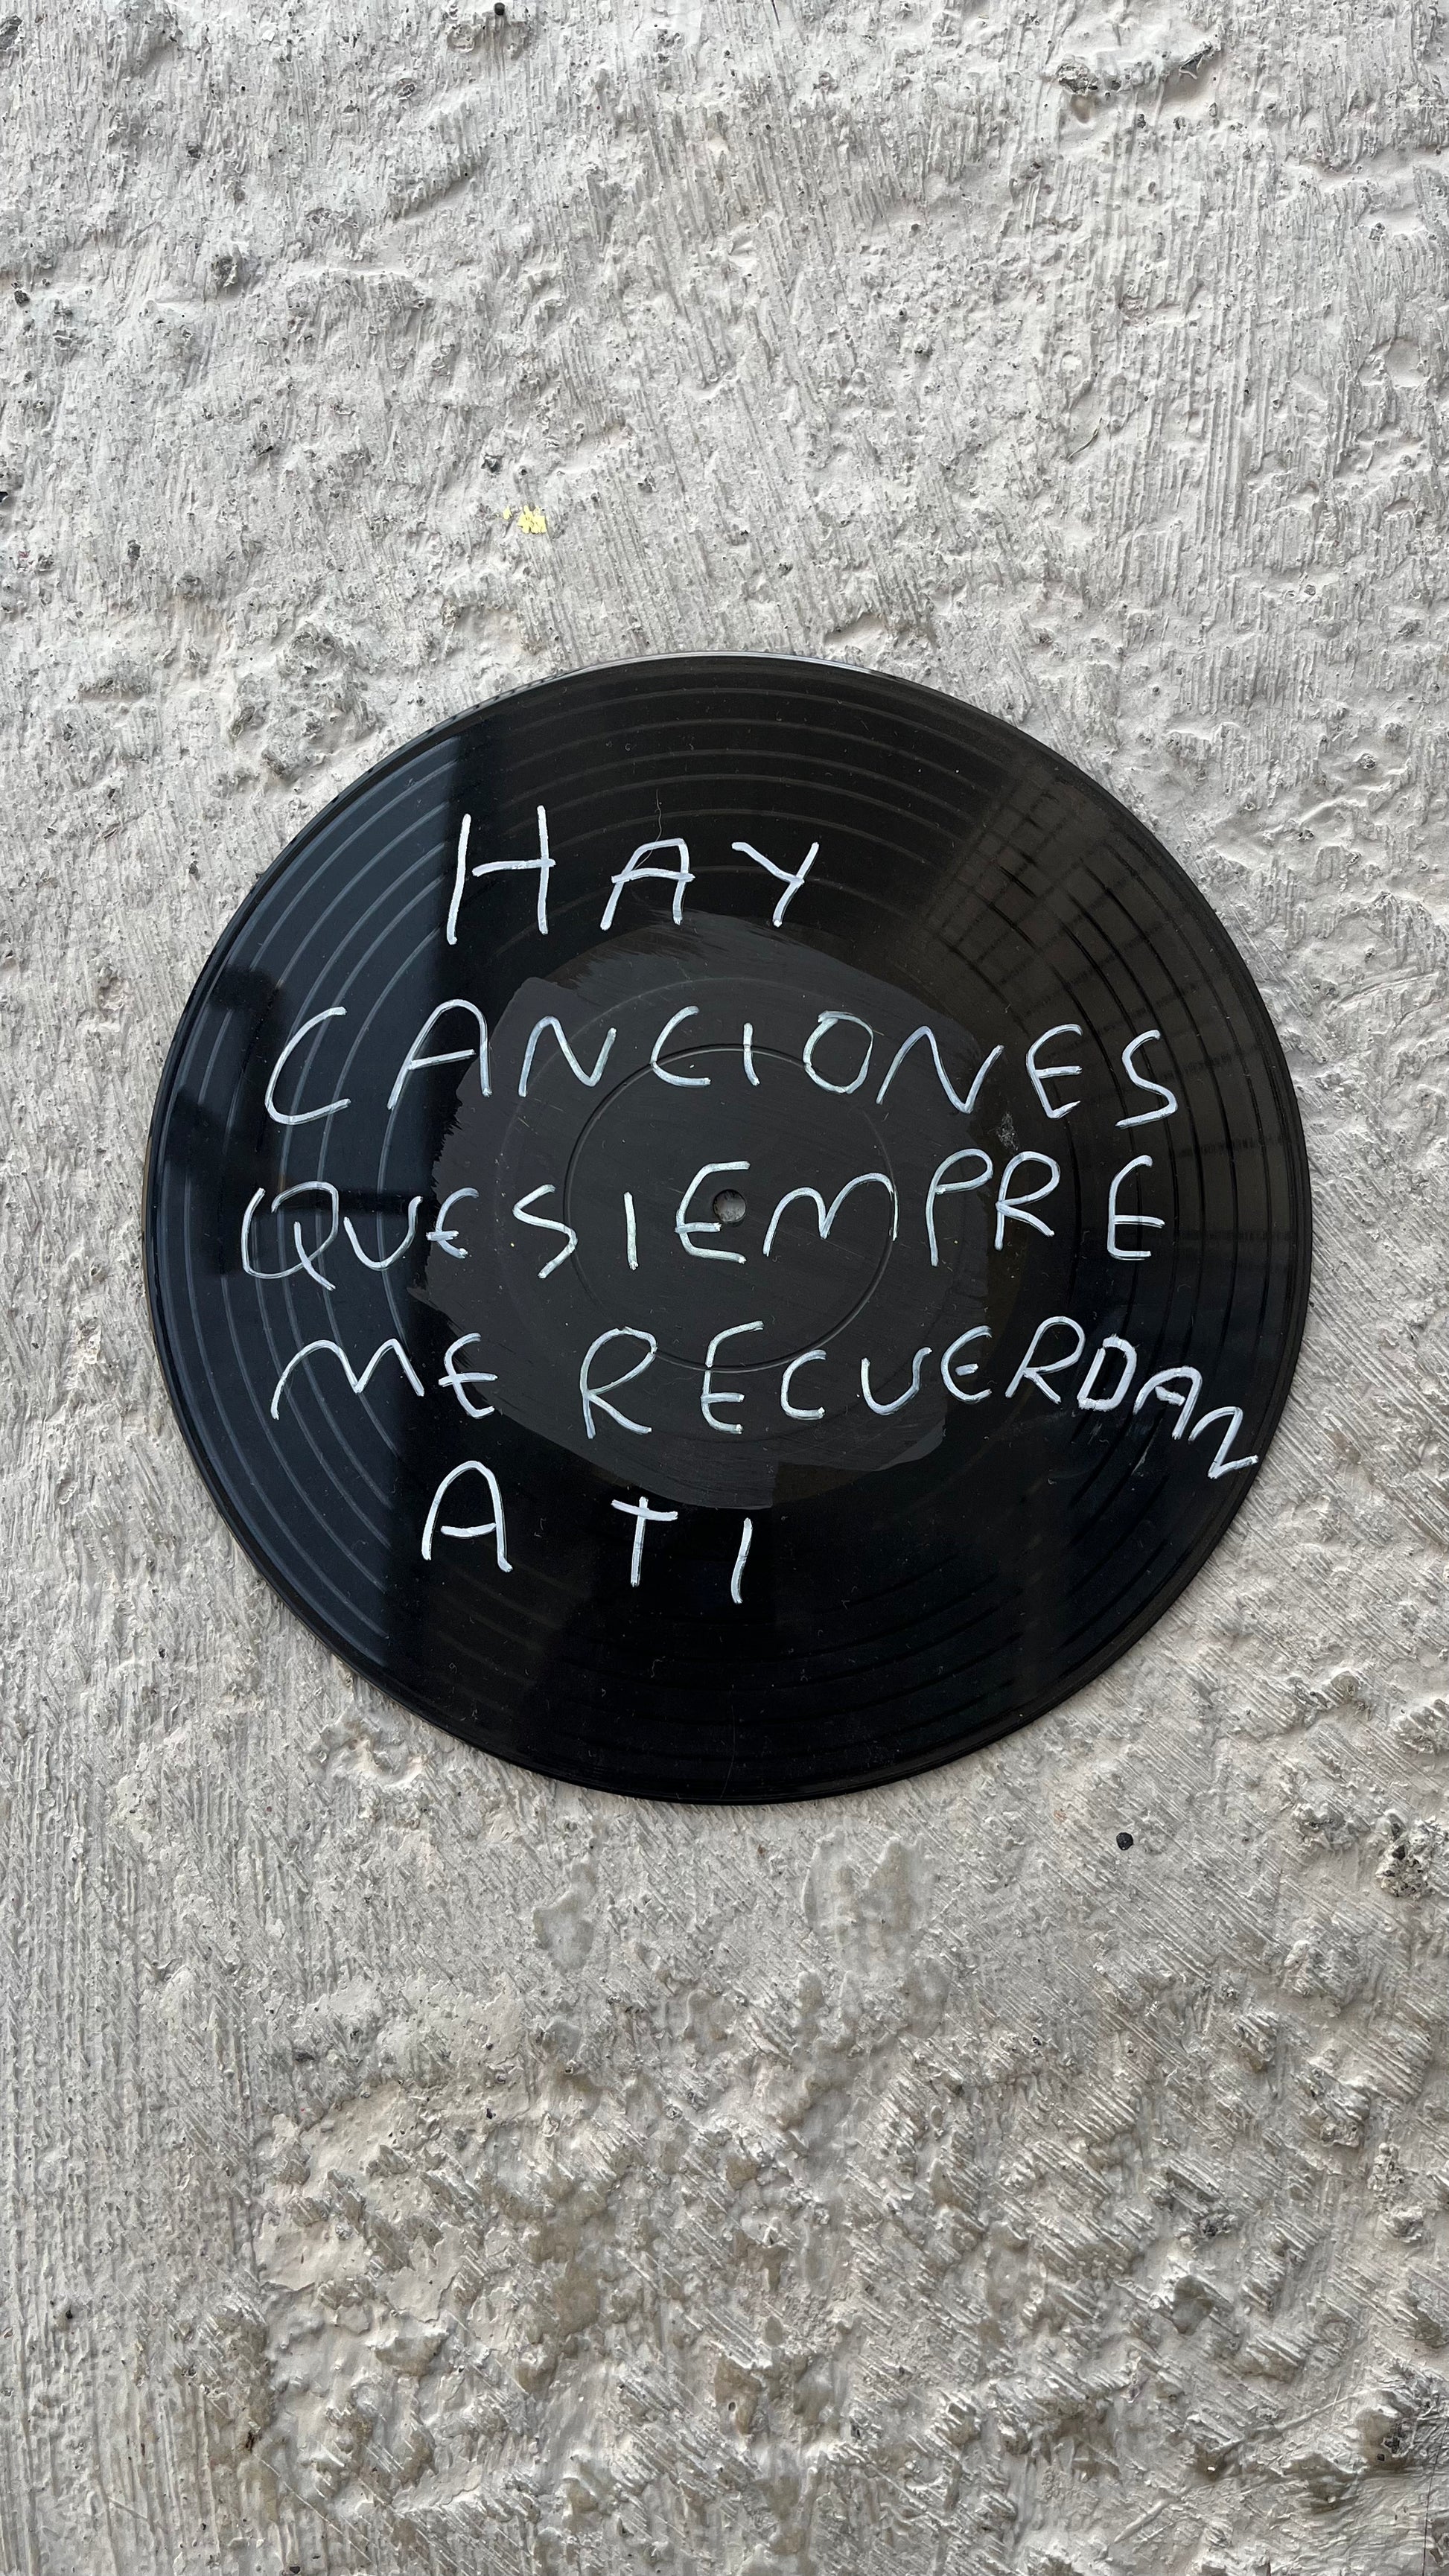 HAY
CANCIONES
QUE SIEMPRE
ME RECUERDAN
A TI